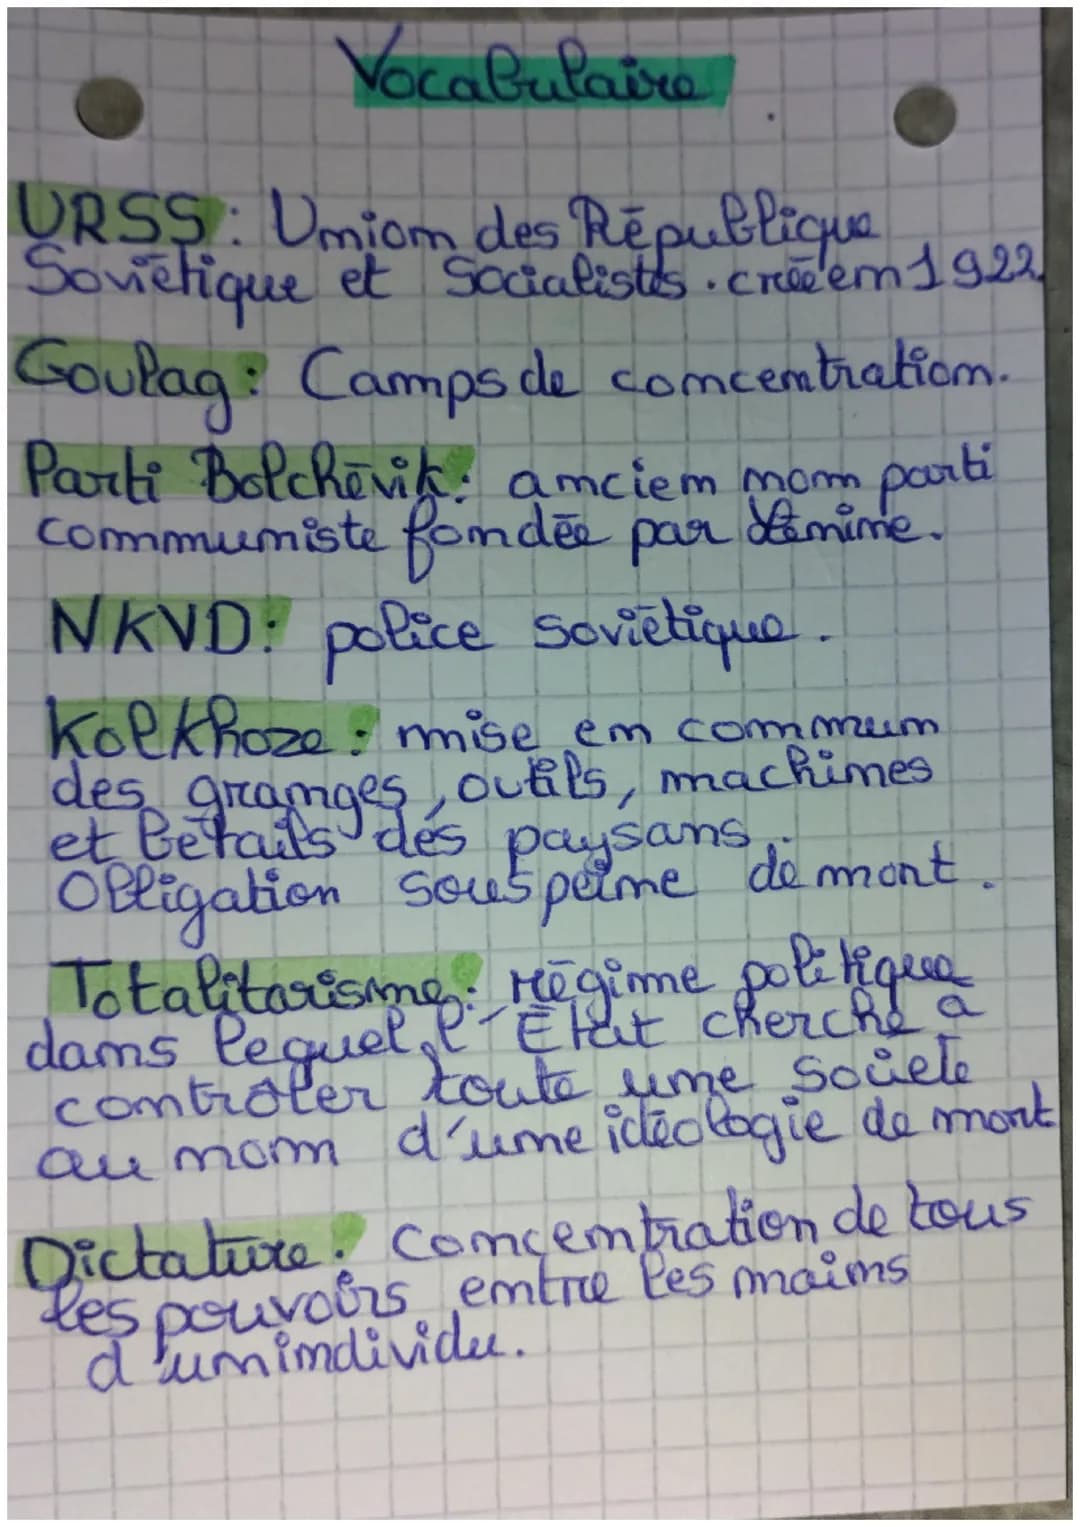 Vocabulaire
URSS : Union des République
Soviétique et Socialistes . créé en 1922.
Goulag : Camps de concentration.
Parti Bolchévik : ancien nom parti
communiste fondée par Lénine.
NKVD : police soviétique .
Kolkhoze : mise en commun
des granges, outils, machines
et betails des paysans.
Obligation sous peine de mort .
Totalitarisme : régime politique
dans lequel l'État cherche à
contrôler toute une société
au nom d'une idéologie de mort
Dictature : Concentration de tous
les pouvoirs entre les mains
d'un individu.